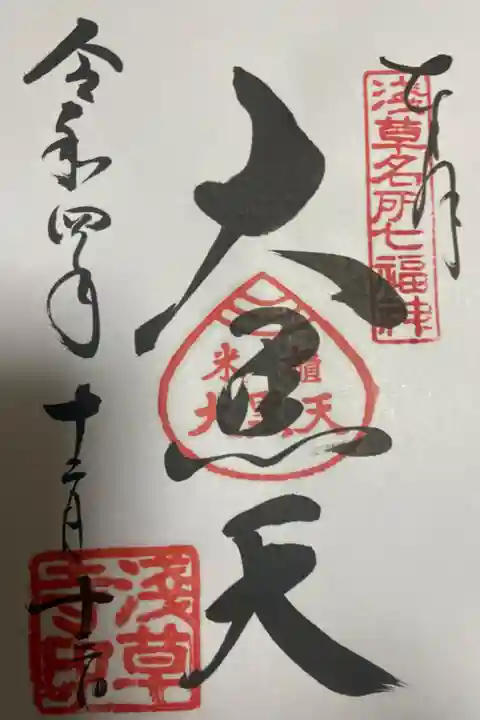 奉拝
浅草名所七福神
大黒天
米櫃
大黒天
令和四年
十二月十一日
浅草
寺印